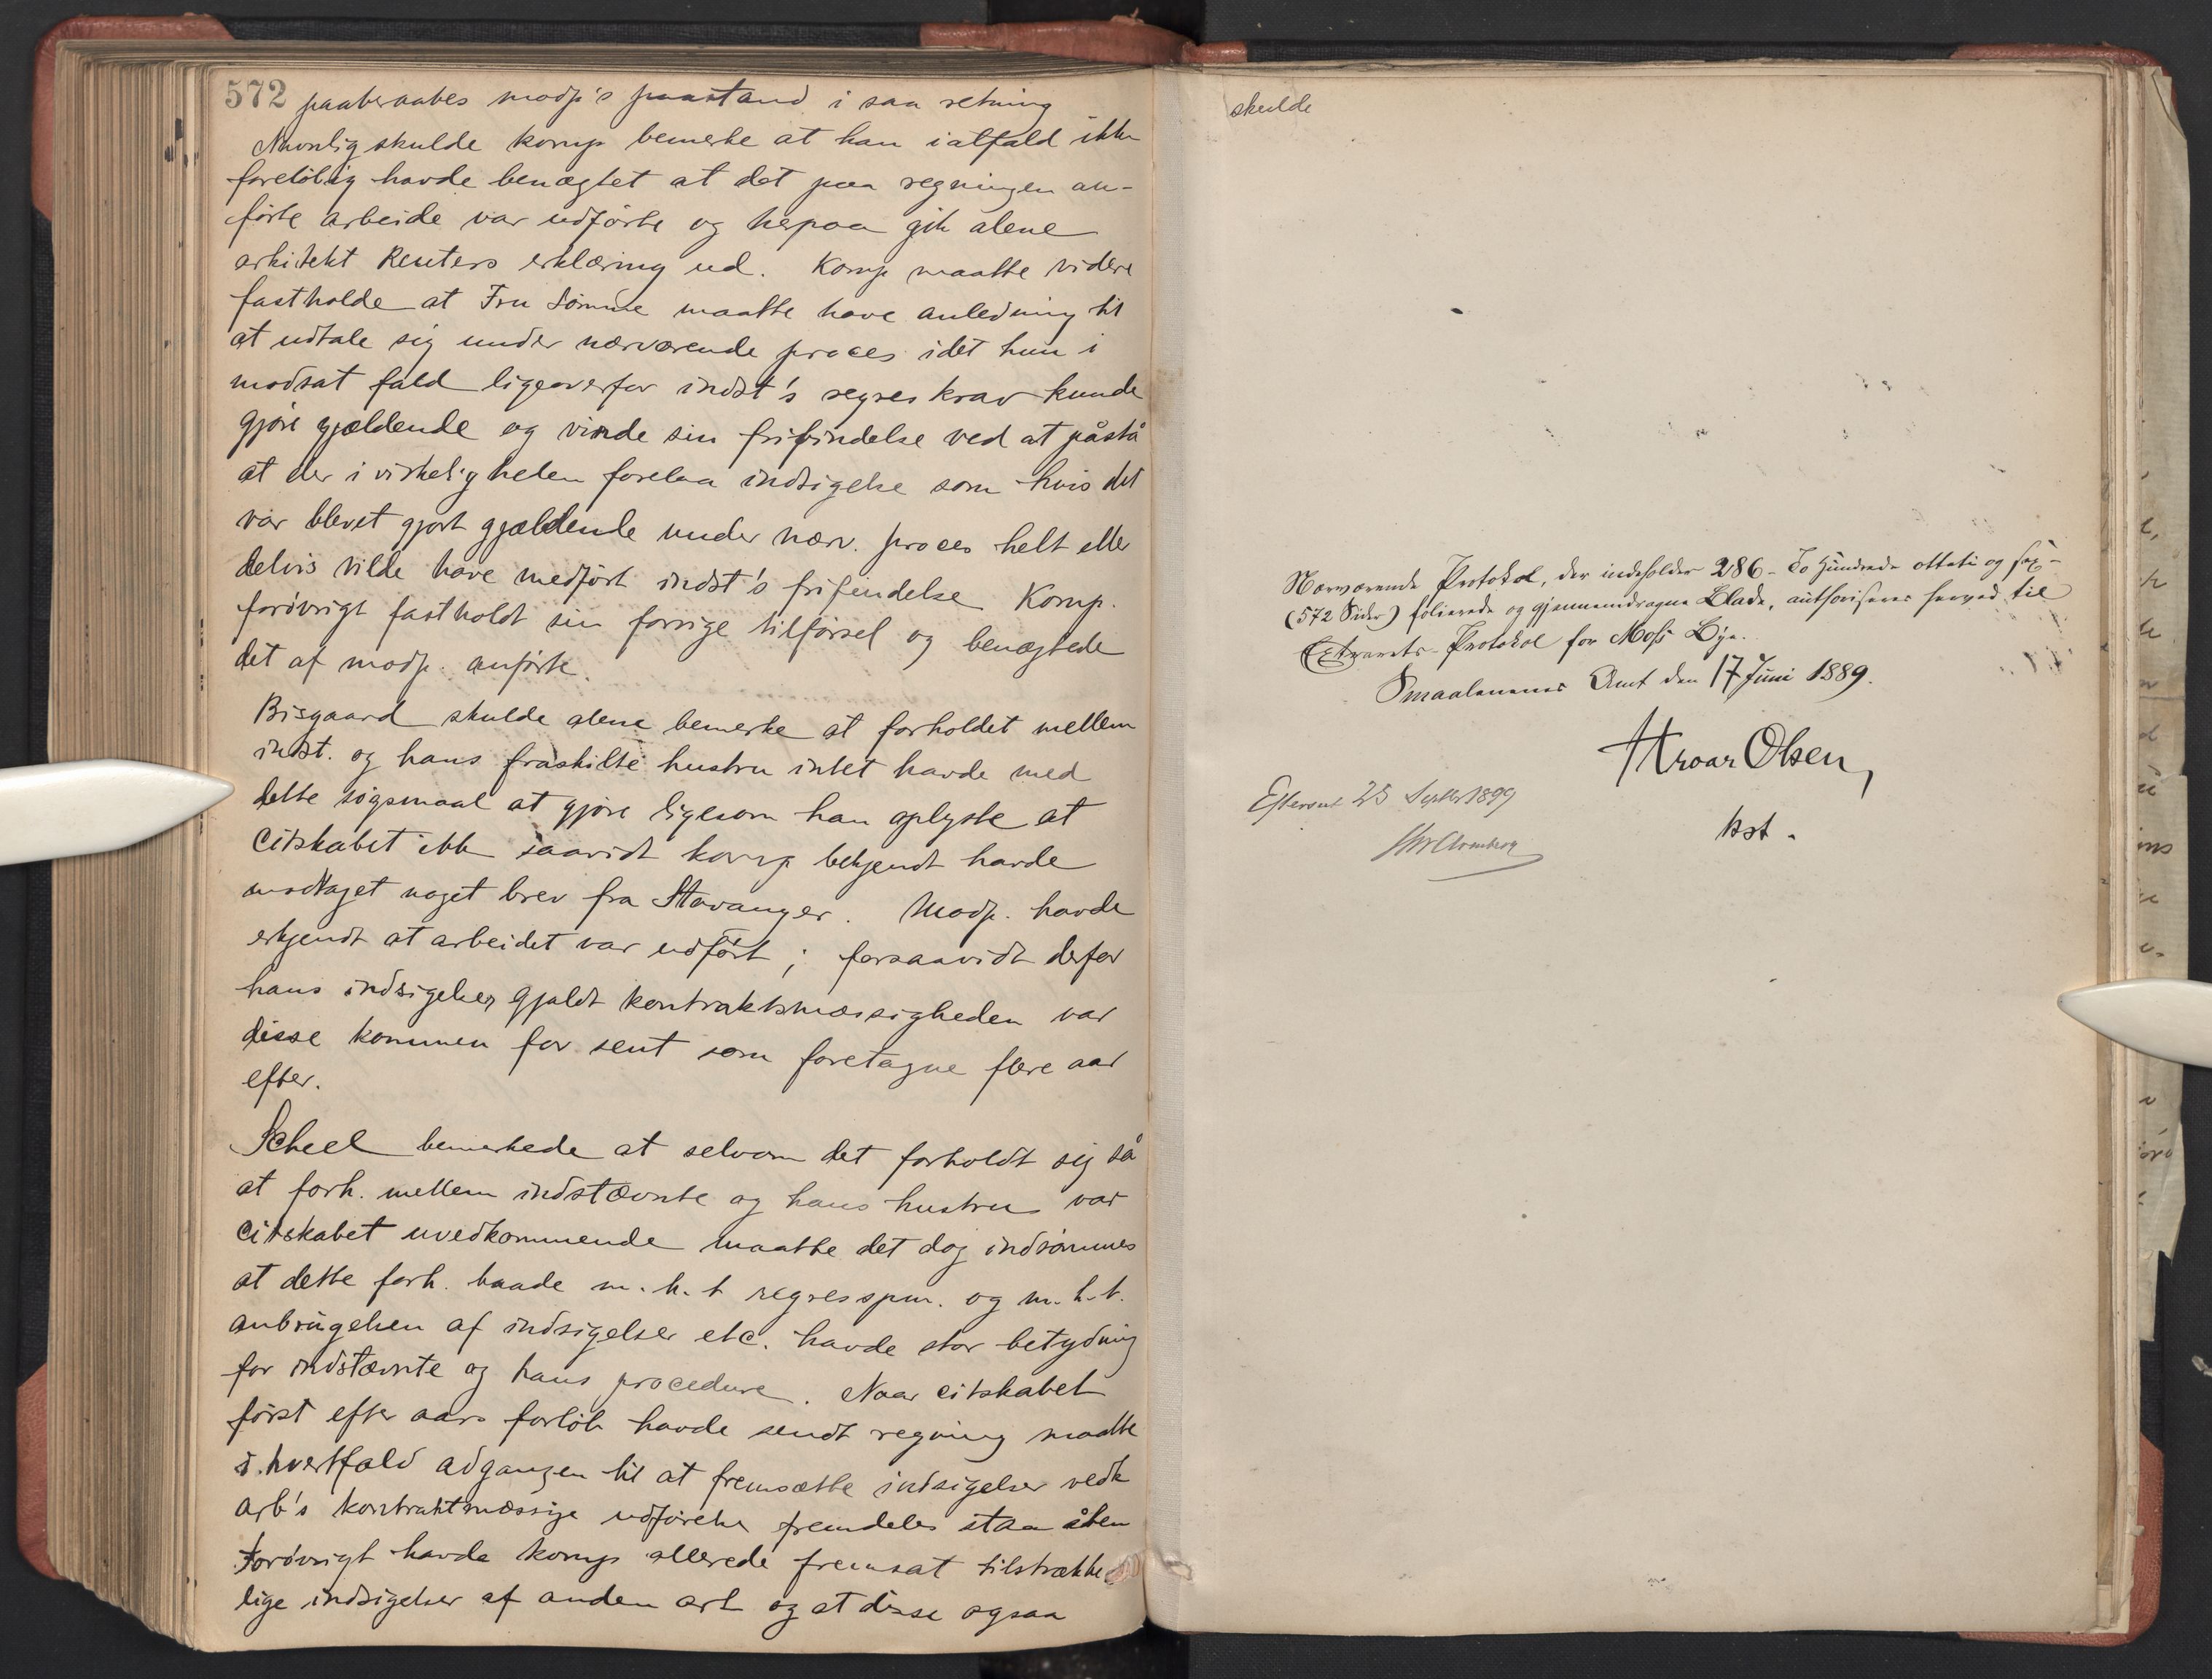 572 paaberaabes modp's paastand i saa retning
Navnlig skulde komp bemerke at han ialfald ikke
foreløbig havde benægtet at det paa regningen an-
førte arbeide var udførte og herpaa gik alene
arkitekt Reuters erklæring ud. Komp maatte videre
fastholde at Fru Sømme maatte have anledning til
at udtale sig under nærværende proces idet hun i
modsat fald ligeoverfor indst's regreskrav kunde
gjøre gjældende og vinde sin frifindelse ved at påstå
at der i virkeligheden forelaa indsigelse som hvis det
var blevet gjort gjældende under nærv. proces helt eller
delvis vilde have medført indst's frifindelse Komp.
forøvrigt fastholdt sin forrige tilførsel og benægtede
det af modp. anførte.
Bisgaard skulde alene bemerke at forholdet mellem
indst. og hans fraskilte hustru intet havde med
dette søgsmaal at gjøre ligesom han oplyste at
Citskabet ikke saavidt komp bekjendt havde
modtaget noget brev fra Stavanger. Modp. havde
erkjendt at arbeidet var udført; forsaavidt derfor
hans indsigelser gjaldt kontraktsmæssigheden var
disse kommen for sent som foretagne flere aar
efter.
Scheel bemerkede at selvom det forholdt sig så
at forh. mellem indstævnte og hans hustru var
Citskabet uvedkommende maatte det dog indrømmes
at dette forh. baade m.h.t regresspm. og m.h.t.
anbringelsen af indsigelser etc. havde stor betydning
for indstævnte og hans procedure. Naar citskabet
først efter aars forløb havde sendt regning maatte
i hvertfald adgangen til at fremsætte indsigelser vedk
arb's kontraktmæssige udførelse fremdeles staa åben
Forøvrigt havde komp allerede fremsat tilstrække
lige indsigelser af anden art og at disse ogsaa
skulde
Nærværende Protokol, der indeholder 286 - To Hundrede otteti og sex -
(572 Sider) folierede og gjennemdragne Blade, authoriseres herved til
Extrarets-Protokol for Moss By.
Smaalenenes Amt den 17 Juni 1889.
Hroar Olsen,
kst.
Efterseet 25 Septbr 1899